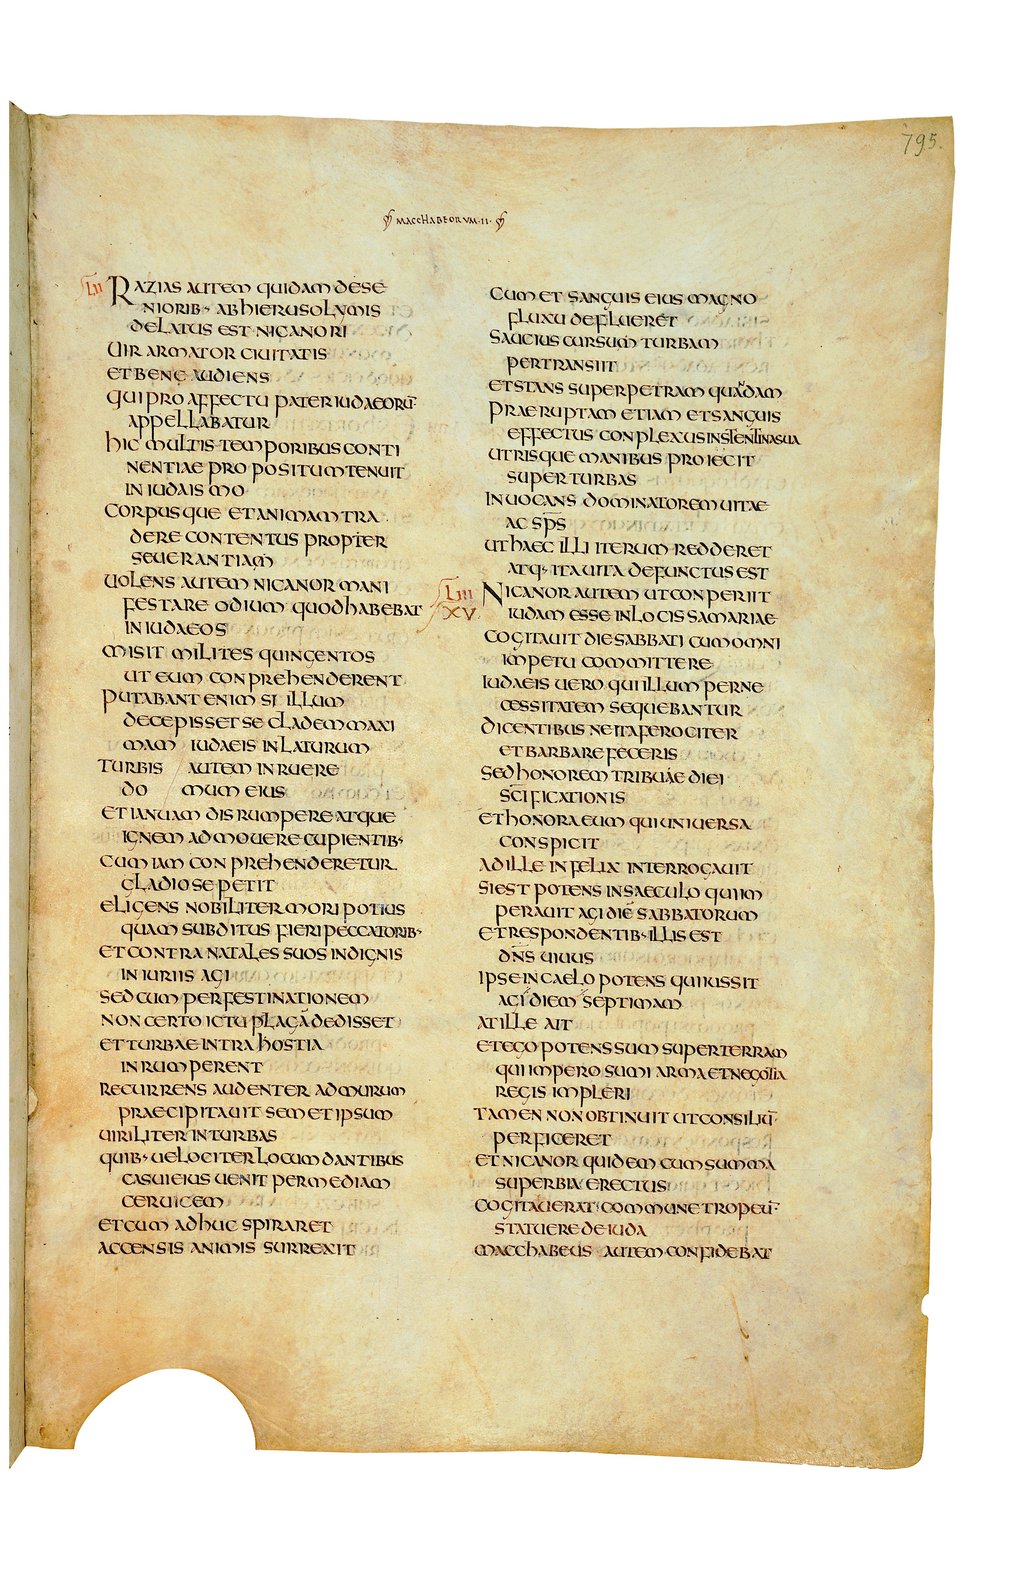 795.
MACCHABEORUM·II·
LII RAZIAS AUTEM QUIDAM DE SE
NIORIB· AB HIERUSOLYMIS
DELATUS EST NICANORI
UIR ARMATOR CIUITATIS
ET BENE AUDIENS
QUI PRO AFFECTU PATER IUDAEORŪ
APPELLABATUR
HIC MULTIS TEMPORIBUS CONTI
NENTIAE PROPOSITUM TENUIT
IN IUDAISMO
CORPUSQUE ET ANIMAM TRA
DERE CONTENTUS PROPTER
SEUERANTIAM
UOLENS AUTEM NICANOR MANI
FESTARE ODIUM QUOD HABEBAT
IN IUDAEOS
MISIT MILITES QUINGENTOS
UT EUM CONPREHENDERENT
PUTABANT ENIM SI ILLUM
DECEPISSET SE CLADEM MAXI
MAM IUDAEIS INLATURUM
TURBIS AUTEM INRUERE
DOMUM EIUS
ET IANUAM DISRUMPERE ATQUE
IGNEM ADMOUERE CUPIENTIB·
CUM IAM CONPREHENDERETUR
GLADIO SE PETIT
ELIGENS NOBILITER MORI POTIUS
QUAM SUBDITUS FIERI PECCATORIB·
ET CONTRA NATALES SUOS INDIGNIS
INIURIIS AGI
SED CUM PER FESTINATIONEM
NON CERTO ICTU PLAGĀ DEDISSET
ET TURBAE INTRA HOSTIA
INRUMPERENT
RECURRENS AUDENTER AD MURUM
PRAECIPITAUIT SEMETIPSUM
UIRILITER IN TURBAS
QUIB· UELOCITER LOCUM DANTIBUS
CASUI EIUS UENIT PER MEDIAM
CERUICEM
ET CUM ADHUC SPIRARET
ACCENSIS ANIMIS SURREXIT
CUM ET SANGUIS EIUS MAGNO
FLUXU DEFLUERET
SAUCIUS CURSUM TURBAM
PERTRANSIIT
ET STANS SUPER PETRAM QUADAM
PRAERUPTAM ETIAM ET SANGUIS
EFFECTUS CONPLEXUS INSTENTINA SUA
UTRISQUE MANIBUS PROIECIT
SUPER TURBAS
INUOCANS DOMINATOREM UITAE
AC SP̄S
UT HAEC ILLI ITERUM REDDERET
ATQ· ITA UITA DEFUNCTUS EST
LIII NICANOR AUTEM UT CONPERIIT
XV IUDAM ESSE IN LOCIS SAMARIAE
COGITAUIT DIE SABBATI CUM OMNI
IMPETU COMMITTERE
IUDAEIS UERO QUI ILLUM PER NE
CESSITATEM SEQUEBANTUR
DICENTIBUS NE ITA FEROCITER
ET BARBARE FECERIS
SED HONOREM TRIBUAE DIEI
SC̄IFICATIONIS
ET HONORA EUM QUI UNIUERSA
CONSPICIT
AD ILLE INFELIX INTERROGAUIT
SI EST POTENS IN SAECULO QUI IM
PERAUIT AGI DIĒ SABBATORUM
ET RESPONDENTIB· ILLIS EST
DN̄S UIUUS
IPSE IN CAELO POTENS QUI IUSSIT
AGI DIEM SEPTIMAM
AT ILLE AIT
ET EGO POTENS SUM SUPER TERRAM
QUI IMPERO SUMI ARMA ET NEGOTIA
REGIS IMPLERI
TAMEN NON OBTINUIT UT CONSILIŪ
PERFICERET
ET NICANOR QUIDEM CUM SUMMA
SUPERBIA ERECTUS
COGITAUERAT COMMUNE TROPEŪ
STATUERE DE IUDA
MACCHABEUS AUTEM CONFIDEBAT